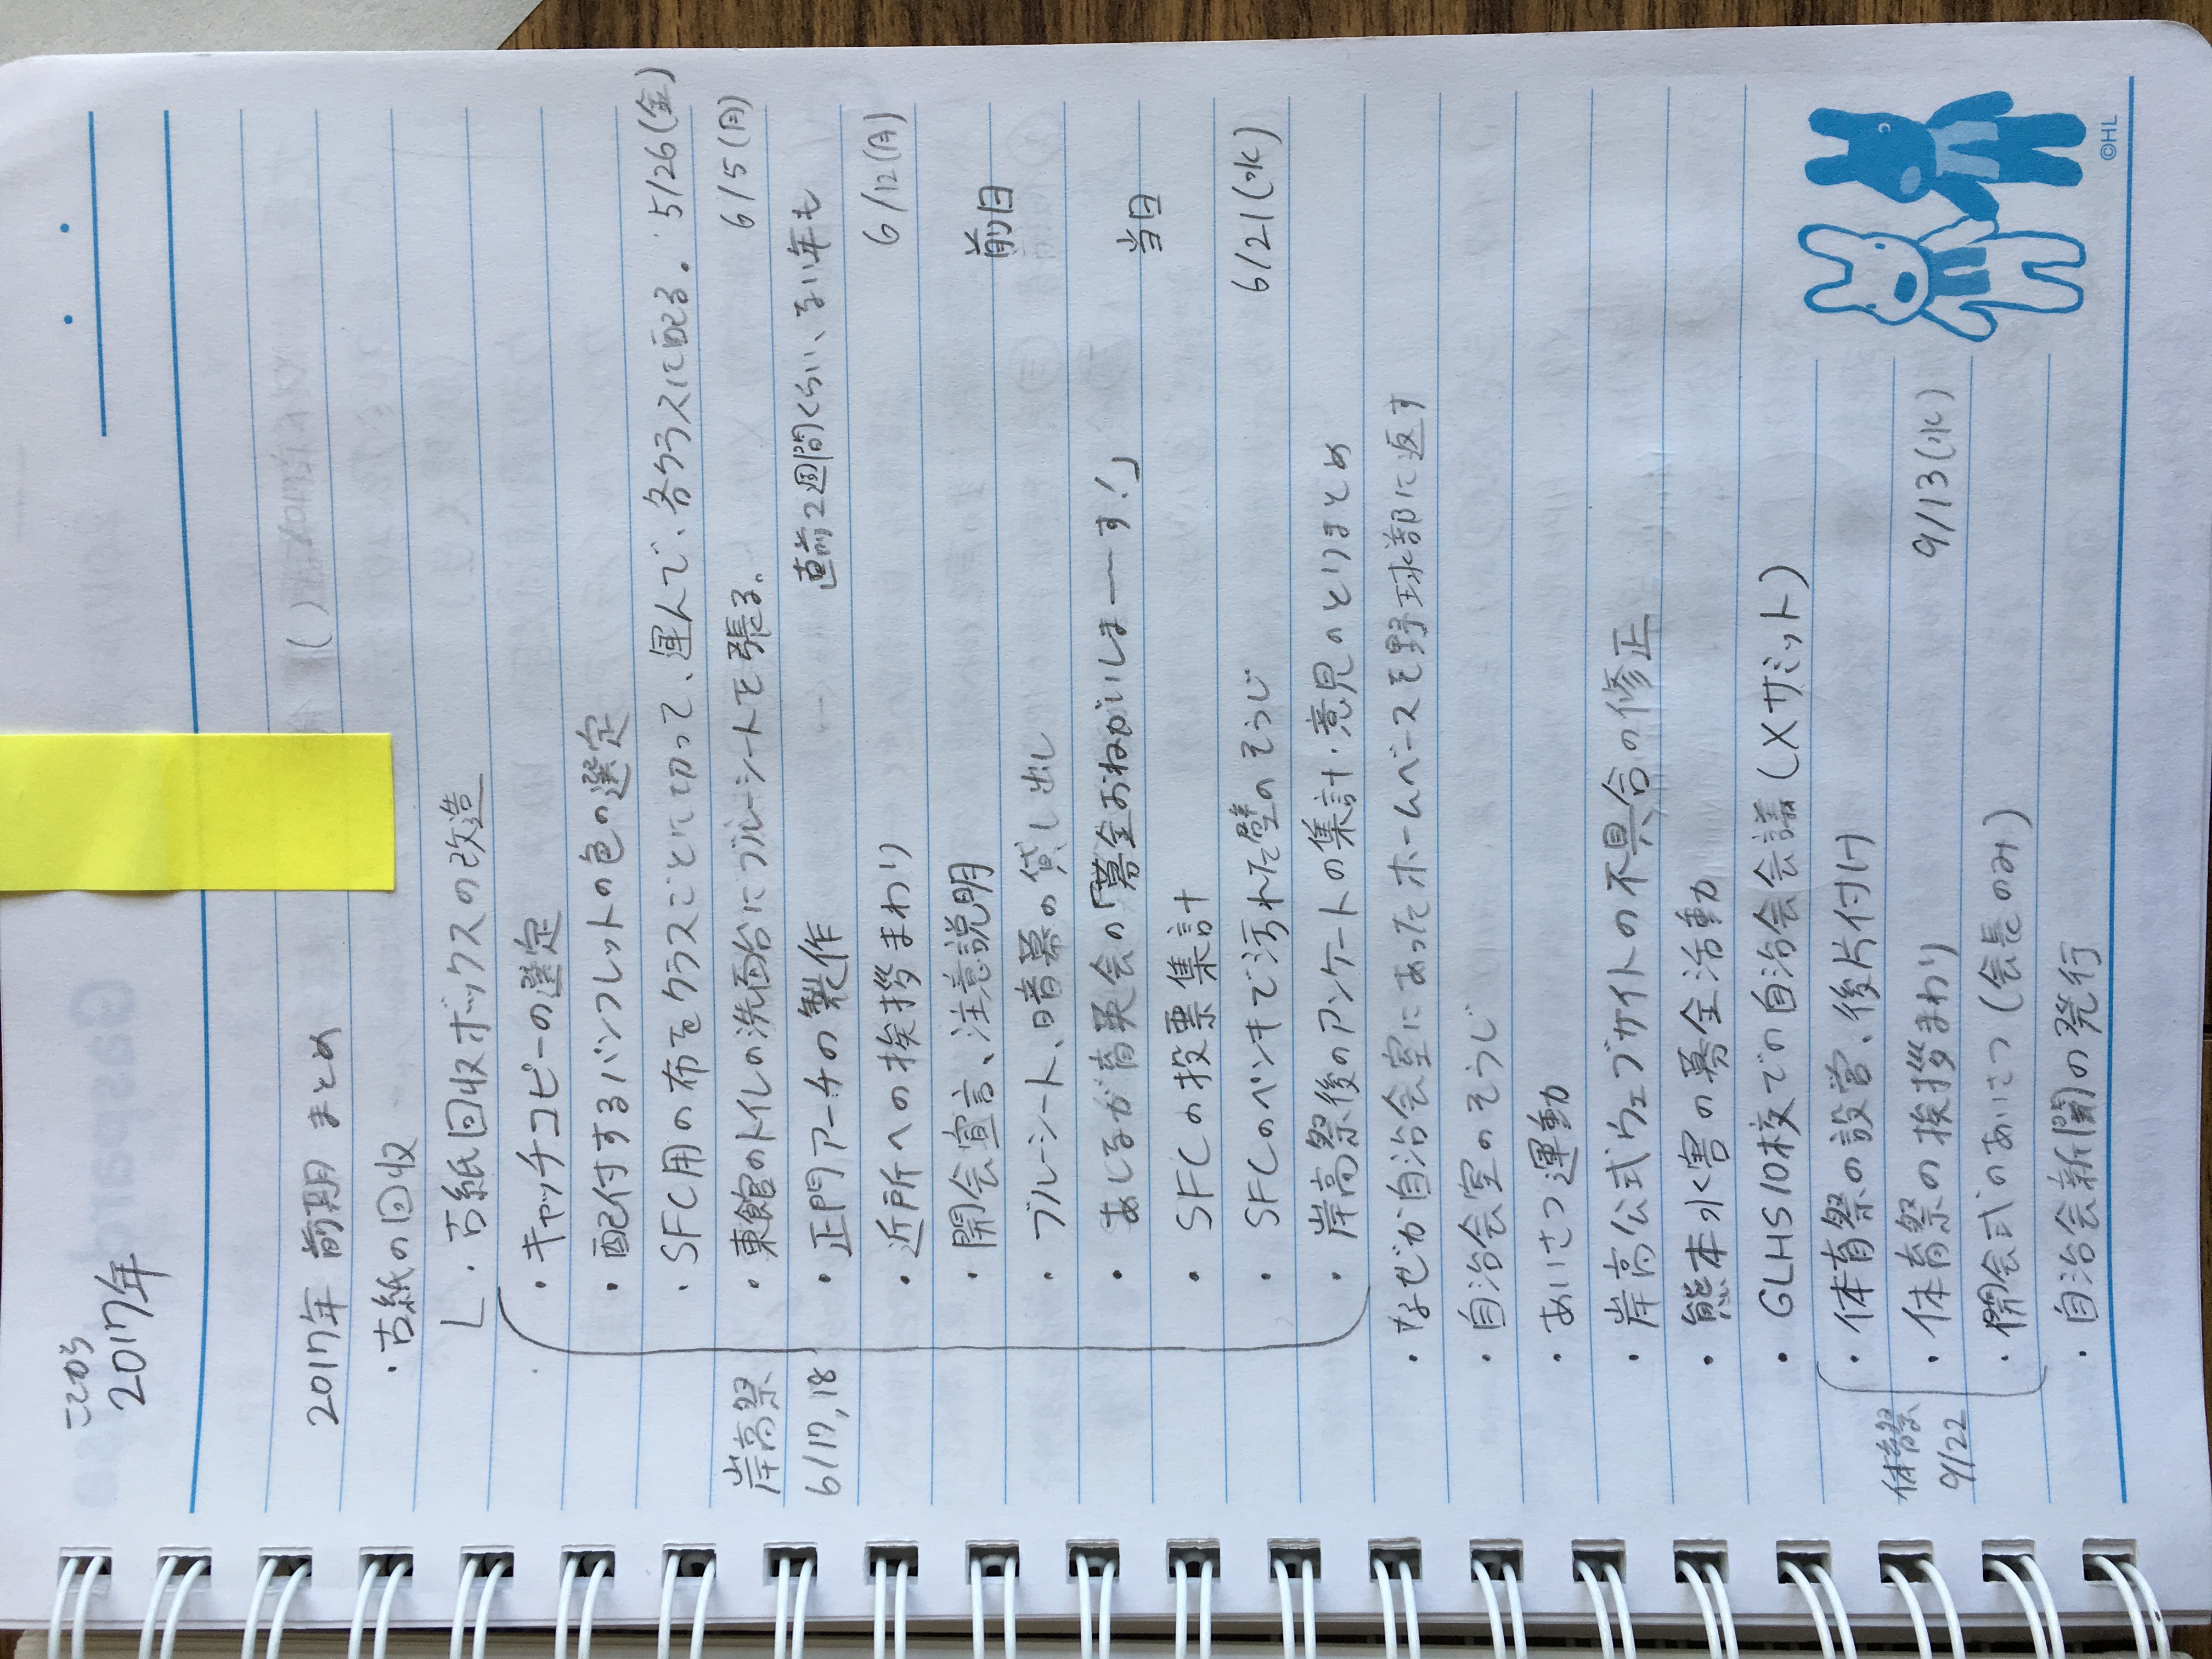 ここから
2017年
2017年 前期 まとめ ( )
・古紙の回収
└ ・古紙回収ボックスの改造
・キャッチコピーの選定
・配付するパンフレットの色の選定
・SFC用の布をクラスごとに切って、運んで、各クラスに配る。 5/26(金)
・東館のトイレの洗面台にブルーシートを張る。 6/5(月)
岸高祭
6/17,18
・正門アーチの製作 直前2週間くらい、ない年も
・近所への挨拶まわり 6/12(月)
・開会宣言、注意説明 前日
・ブルーシート、暗幕の貸し出し
・あしなが育英会の「募金おねがいしまーーす!」
当日
・SFCの投票集計
・SFCのペンキで汚れた壁のそうじ 6/21(水)
・岸高祭後のアンケートの集計・意見のとりまとめ
・なぜか自治会室にあったホームベースを野球部に返す
・自治会室のそうじ
・あいさつ運動
・岸高公式ウェブサイトの不具合の修正
・熊本水害の募金活動
・GLHS10校での自治会会議(Xサミット)
・体育祭の設営、後片付け
体育祭
9/22
・体育祭の挨拶まわり 9/13(水)
・開会式のあいさつ(会長のみ)
・自治会新聞の発行
©HL